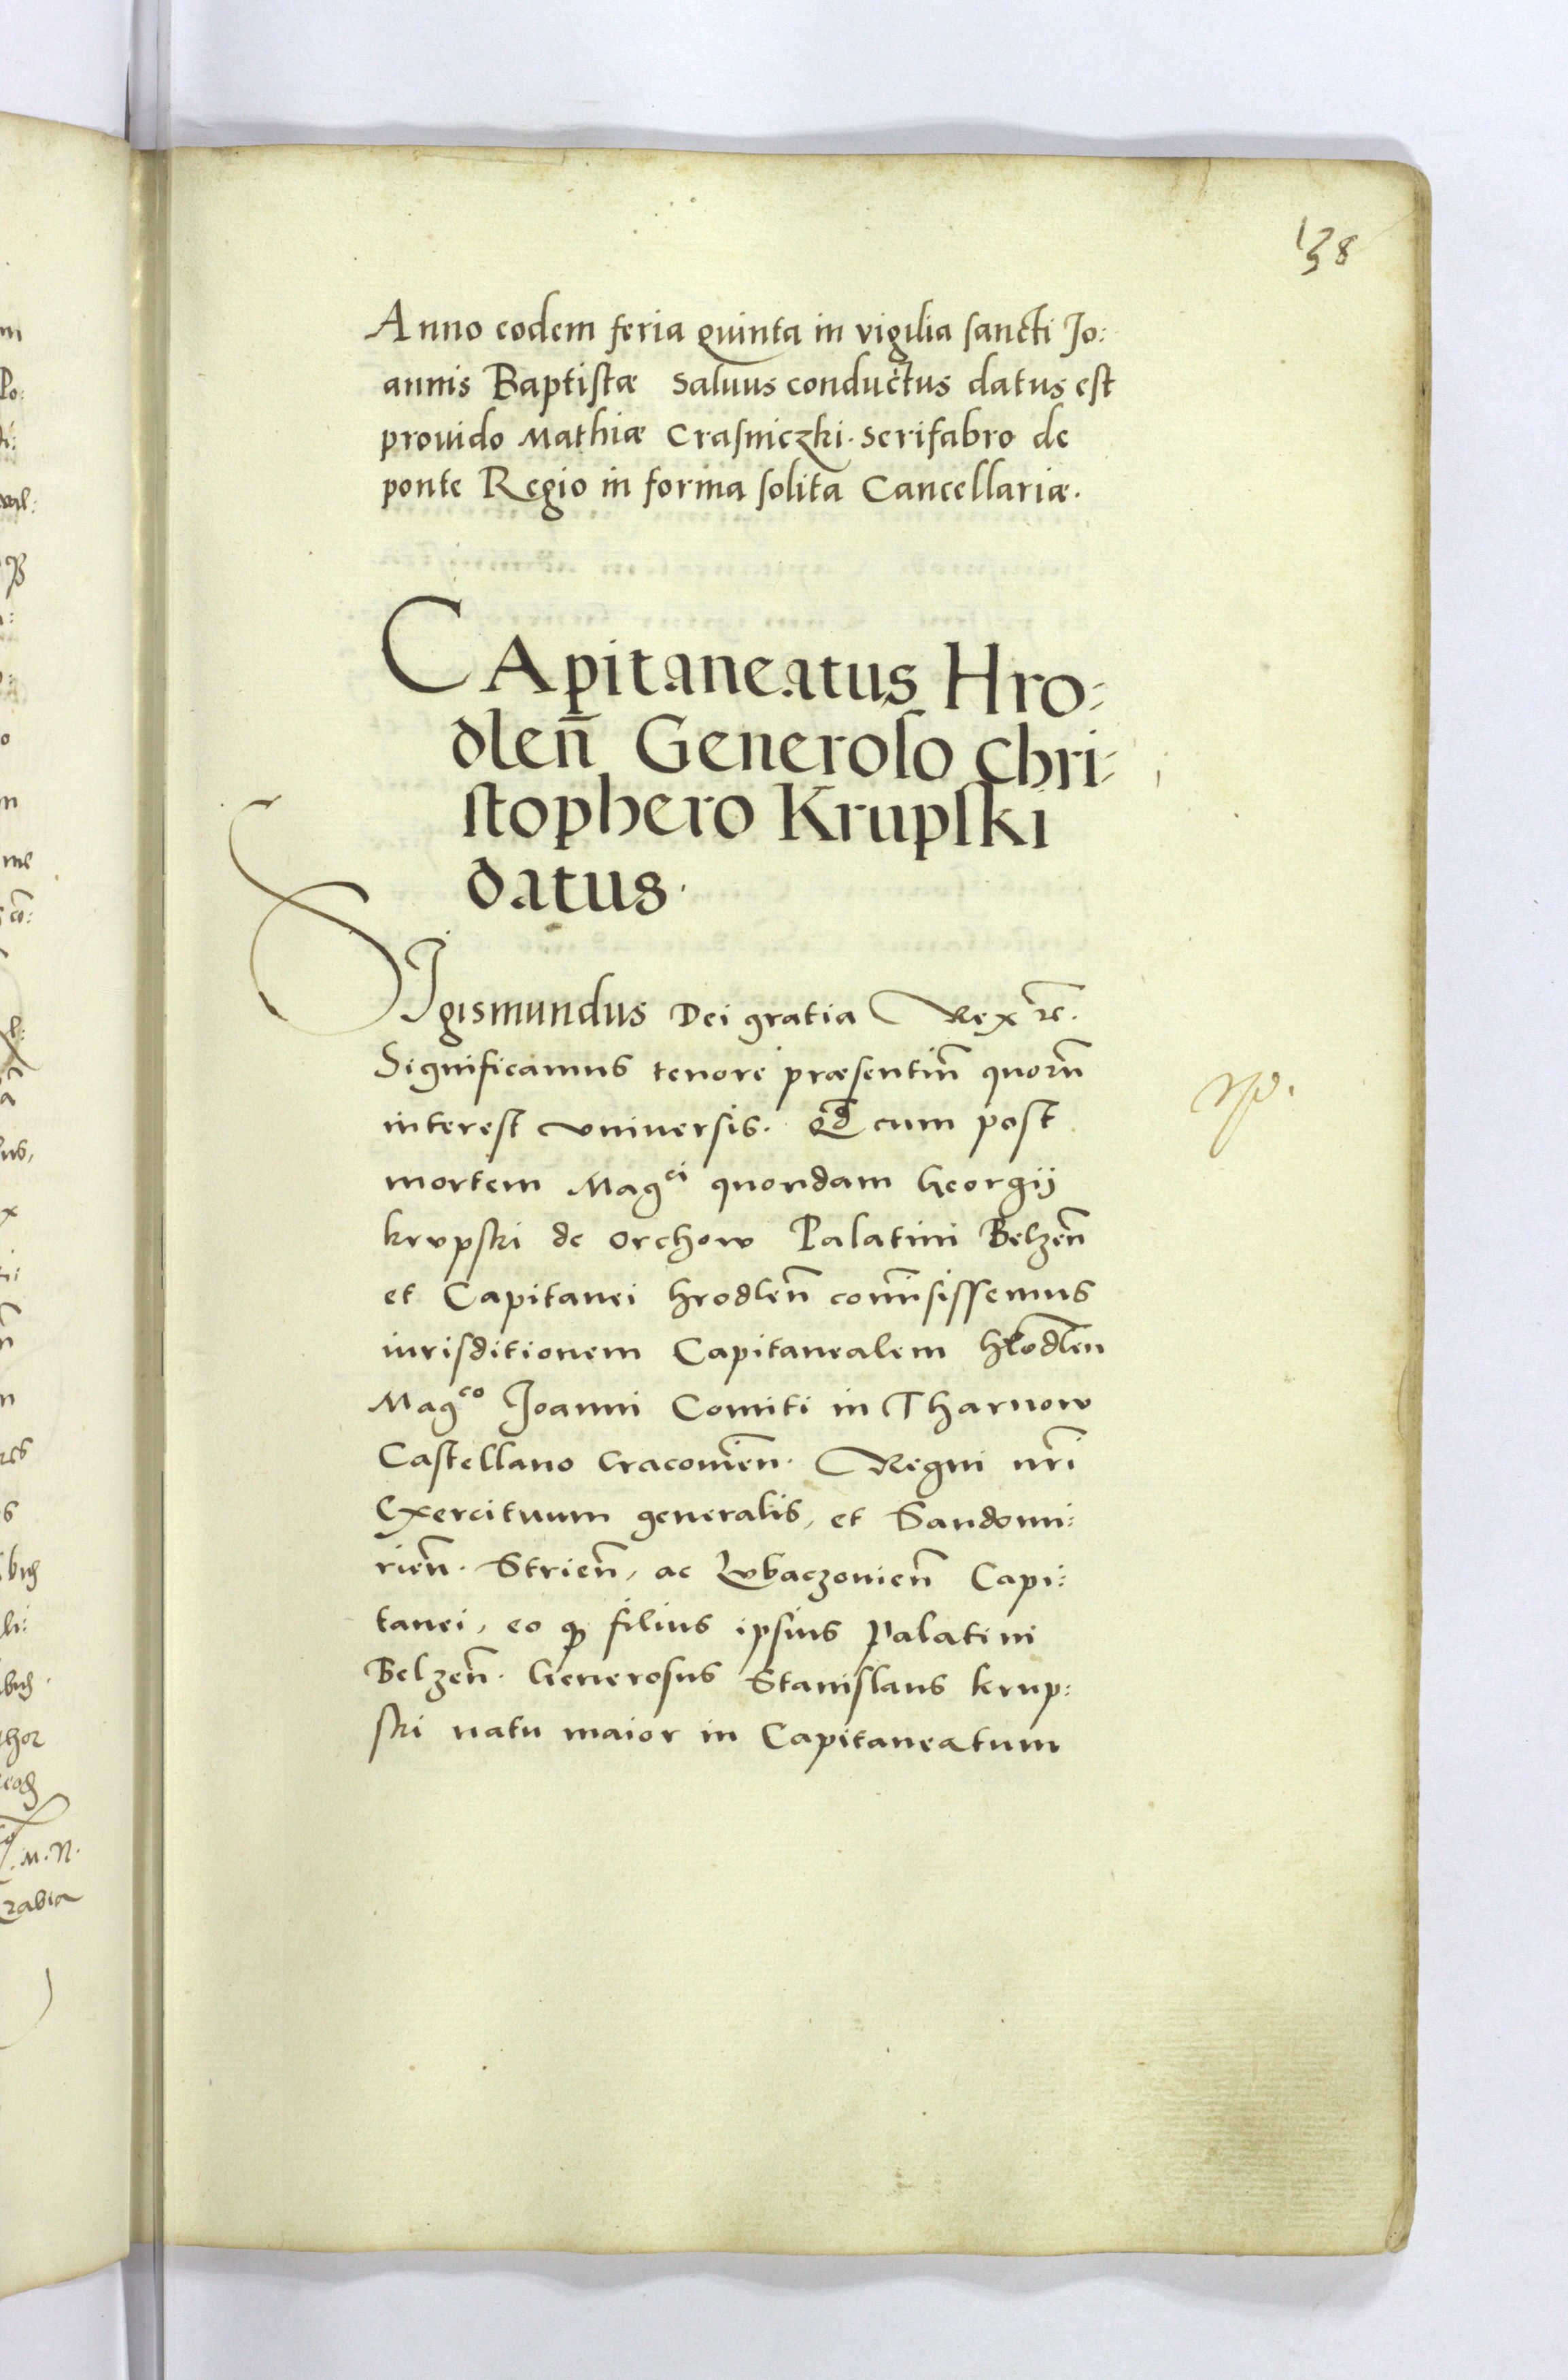 138
Anno eodem feria quinta in vigilia sancti Jo:
annis Baptistæ Saluus conductus datus est
prouido Mathiæ Crasniczki. Serifabro de
ponte Regio in forma solita Cancellariæ.
CApitaneatus Hro:
dleñ Generoso Chri:
stophero Krupski
datus.
SIgismundus Dei gratia Rex rc̃.
Significamus tenore præsentiũ quorũ
interest vniuersis. Qđ cum post
mortem Mag^ci quondam Georgij
krvpski de Orchow Palatini Belzeñ
et Capitanei hrodleñ com̃isissemus
iurisditionem Capitanealem hrodleñ
Mag^co Joanni Comiti in Tharnow
Castellano Cracouieñ. Regni nr̃i
Exercituum generalis, et Sandomi:
rieñ. Strieñ, ac Lvbaczouieñ Capi:
tanei, eo qꝫ filius ipsius Palatini
Belzeñ. Generosus Stanislaus krup:
ski natu maior in Capitaneatum